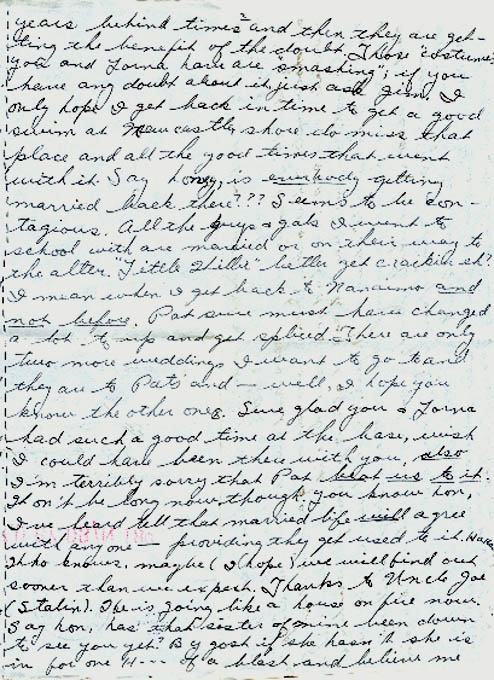 years behind times" and then they are get-
ting the benefit of the doubt. Those "costumes"
you and Lorna have are "smashing"; if you
have any doubt about it, just ask Jim. I
only hope I get back in time to get a good
swim at Newcastle, shore do miss that
place and all the good times that went
with it. Say honey, is everybody getting
married back there??? Seems to be con-
tagious. All the guys & gals I went to
school with are married or on their way to
the alter. "Little Hillie" better get crackin eh?
I mean when I get back to Nanaimo and
not before. Pat sure must have changed
a lot to up and get spliced. There are only
two more weddings I want to go to and
they are to Pats and — well, I hope you
know the other one. Sure glad you & Lorna
had such a good time at the base, wish
I could have been there with you, also
I'm terribly sorry that Pat beat us to it.
It won't be long now though you know hon,
I've heard tell that married life will agree
with anyone — providing they get used to it.
Who knows, maybe (I hope) we will find out
sooner than we expect. Thanks to Uncle Joe
(Stalin). He is going like a house on fire now.
Say hon, has that sister of mine been down
to see you yet? By gosh if she hasn't she is
in for one H--- of a blast and believe me